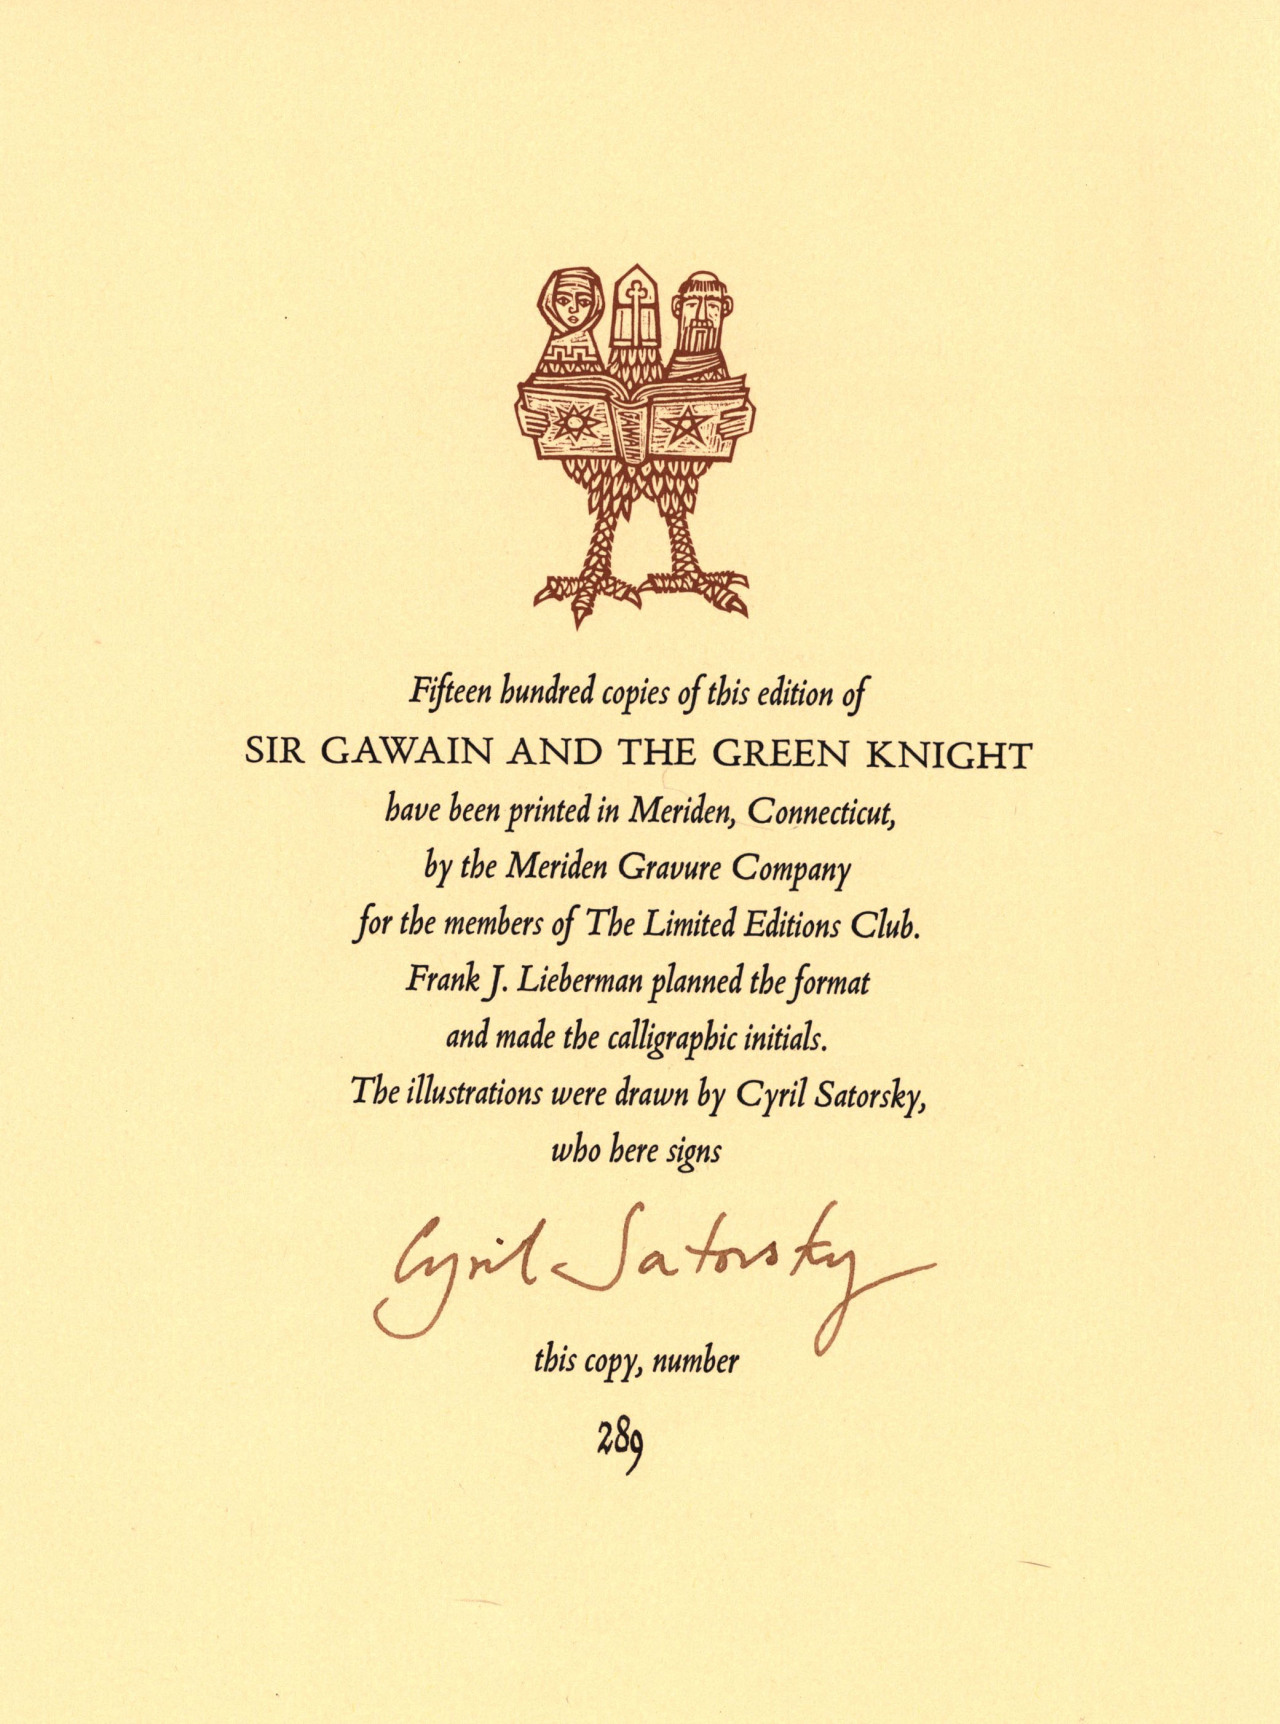 GAWAIN
Fifteen hundred copies of this edition of
SIR GAWAIN AND THE GREEN KNIGHT
have been printed in Meriden, Connecticut,
by the Meriden Gravure Company
for the members of The Limited Editions Club.
Frank J. Lieberman planned the format
and made the calligraphic initials.
The illustrations were drawn by Cyril Satorsky,
who here signs
Cyril Satorsky
this copy, number
289